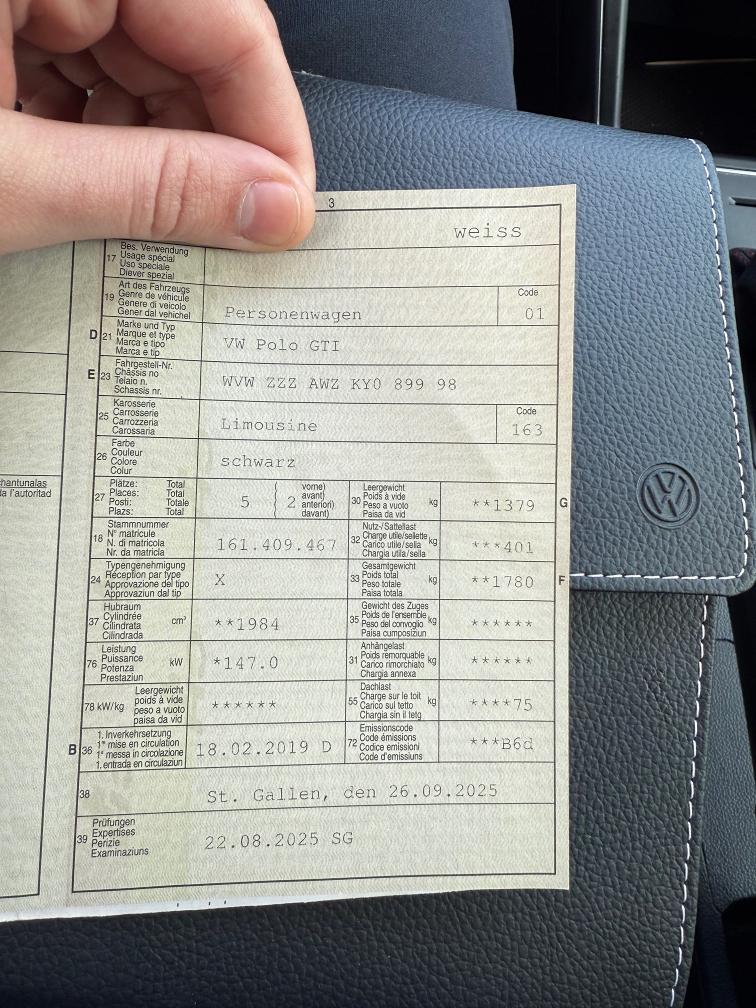 3
weiss
17 Bes. Verwendung
Usage spécial
Uso speciale
Diever spezial
19 Art des Fahrzeugs
Genre de véhicule
Genere di veicolo
Gener dal vehichel
Personenwagen
Code
01
D 21 Marke und Typ
Marque et type
Marca e tipo
Marca e tip
VW Polo GTI
E 23 Fahrgestell-Nr.
Châssis no
Telaio n.
Schassis nr.
WVW ZZZ AWZ KY0 899 98
25 Karosserie
Carrosserie
Carrozzeria
Carossaria
Limousine
Code
163
26 Farbe
Couleur
Colore
Colur
schwarz
27 Plätze: Total
Places: Total
Posti: Totale
Plazs: Total
5 2 vorne)
avant)
anteriori)
davant)
30 Leergewicht
Poids à vide
Peso a vuoto
Paisa da vid
kg
**1379
G
18 Stammnummer
N° matricule
N. di matricola
Nr. da matricla
161.409.467
32 Nutz-/Sattellast
Charge utile/sellette
Carico utile/sella
Chargia utila/sella
kg
***401
24 Typengenehmigung
Réception par type
Approvazione del tipo
Approvaziun dal tip
X
33 Gesamtgewicht
Poids total
Peso totale
Paisa totala
kg
**1780
F
37 Hubraum
Cylindrée
Cilindrata
Cilindrada
cm³
**1984
35 Gewicht des Zuges
Poids de l'ensemble
Peso del convoglio
Paisa cumposiziun
kg
******
76 Leistung
Puissance
Potenza
Prestaziun
kW
*147.0
31 Anhängelast
Poids remorquable
Carico rimorchiato
Chargia annexa
kg
******
78 kW/kg Leergewicht
poids à vide
peso a vuoto
paisa da vid
******
55 Dachlast
Charge sur le toit
Carico sul tetto
Chargia sin il tetg
kg
****75
B 36 1. Inverkehrsetzung
1re mise en circulation
1a messa in circolazione
1. entrada en circulaziun
18.02.2019 D
72 Emissionscode
Code émissions
Codice emissioni
Code d'emissiuns
***B6d
38
St. Gallen, den 26.09.2025
39 Prüfungen
Expertises
Perizie
Examinaziuns
22.08.2025 SG
hantunalas
a l'autoritad
VW